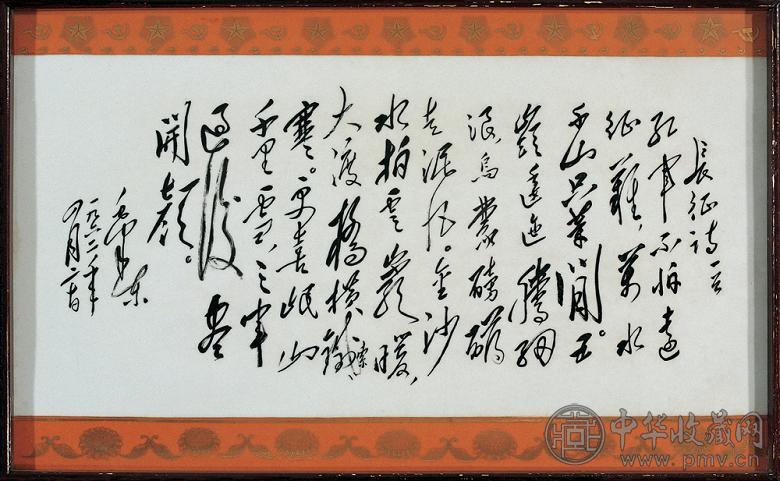 長征詩一首
紅軍不怕遠
征難，萬水
千山只等閒。五
嶺逶迤騰細
浪，烏蒙磅礴
走泥丸。金沙
水拍雲巖暖，
大渡橋橫鐵索
寒。更喜岷山
千里雪，三軍
過後盡
開顏。
毛澤東
一九六二年
四月二十日
中华收藏网
www.pmv.cn